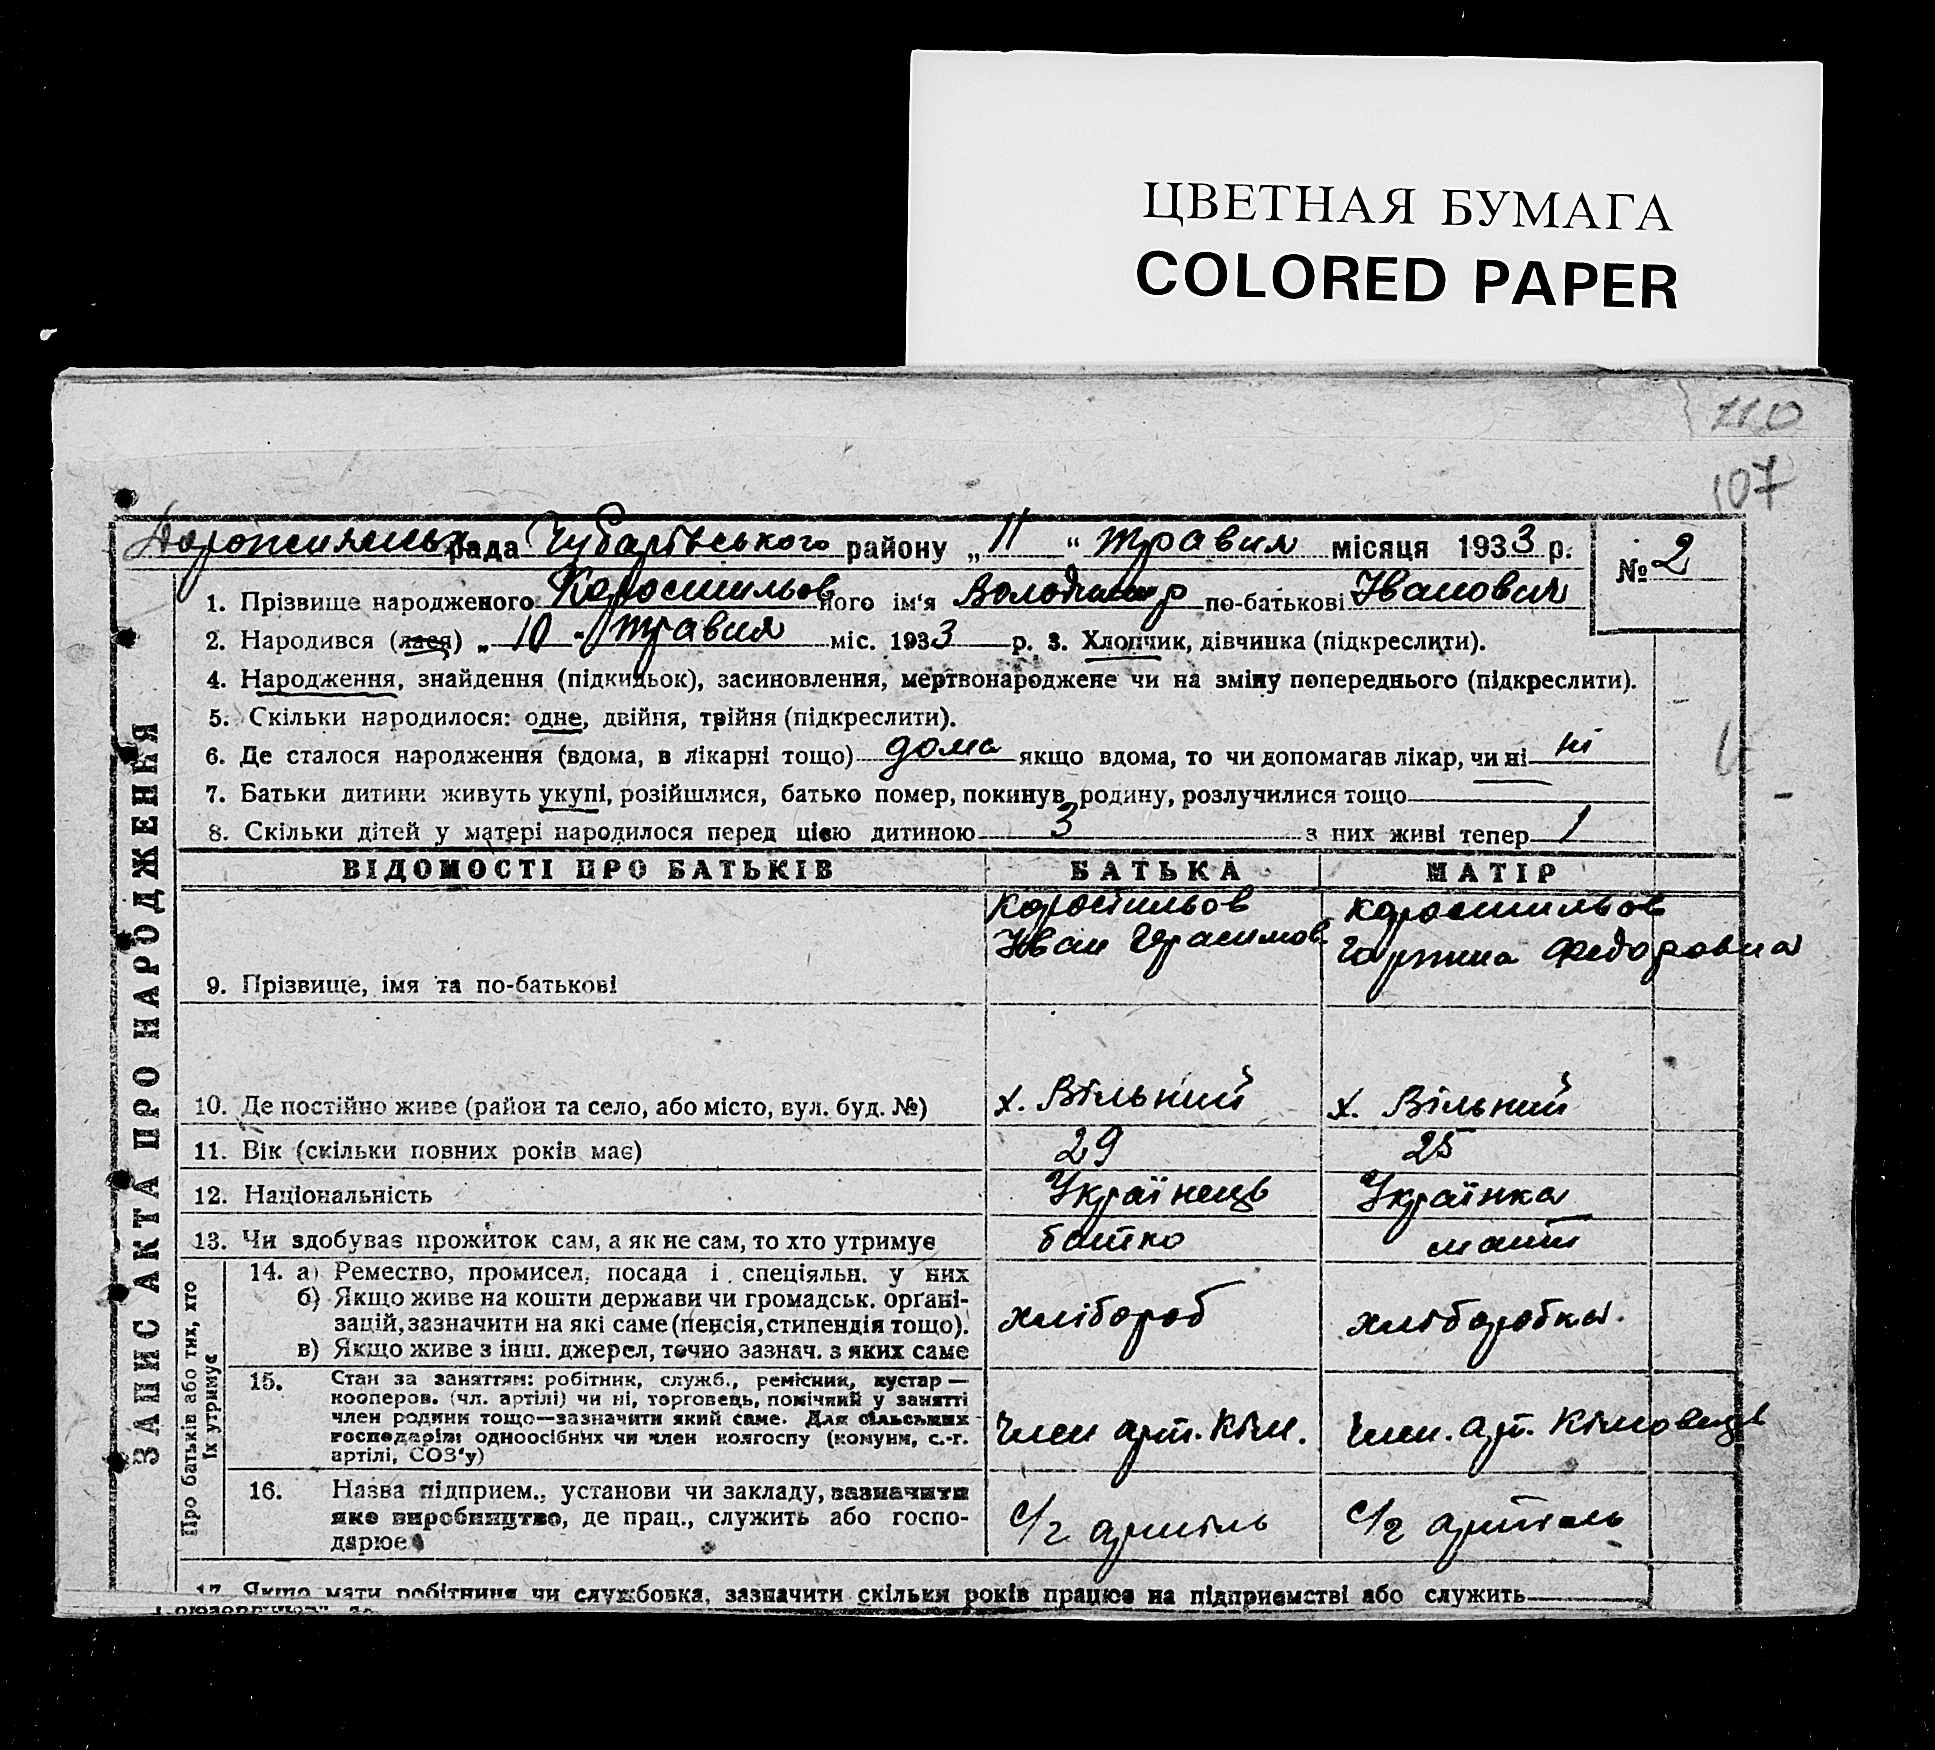 ЦВЕТНАЯ БУМАГА
COLORED PAPER
110
107
рада Чубарівського району „ 11 “ травня місяця 1933 р.
№ 2
1. Прізвище народженого Коростильов його ім'я Володимир по-батькові Іванович
2. Народився (лася) „ 10 „ травня міс. 1933 р. 3. Хлопчик, дівчинка (підкреслити).
4. Народження, знайдення (підкидьок), засиновлення, мертвонароджене чи на зміну попереднього (підкреслити).
5. Скільки народилося: одне, двійня, трійня (підкреслити).
6. Де сталося народження (вдома, в лікарні тощо) дома якщо вдома, то чи допомагав лікар, чи ні ні
7. Батьки дитини живуть укупі, розійшлися, батько помер, покинув родину, розлучилися тощо
8. Скільки дітей у матері народилося перед цією дитиною 3 з них живі тепер 1
ЗАПИС АКТА ПРО НАРОДЖЕННЯ
ВІДОМОСТІ ПРО БАТЬКІВ БАТЬКА МАТІР
Коростильов Коростильов
Іван Герасимов Федоровна
9. Прізвище, імя та по-батькові
10. Де постійно живе (район та село, або місто, вул. буд. №) х. Вільний х. Вільний
11. Вік (скільки повних років має) 29 25
12. Національність Українець Українка
13. Чи здобуває прожиток сам, а як не сам, то хто утримує батко мати
Про батьків або тих, хто
їх утримує
14. а) Ремество, промисел, посада і спеціяльн. у них
б) Якщо живе на кошти держави чи громадськ. орґані-
зацій, зазначити на які саме (пенсія, стипендія тощо).
в) Якщо живе з інш. джерел, точно зазнач. з яких саме
хлібороб хліборобка.
15. Стан за заняттям: робітник, служб., ремісник, кустар —
кооперов. (чл. артілі) чи ні, торговець, помічний у занятті
член родини тощо—зазначити який саме. Для сільських
господарів: одноосібних чи член колгоспу (комуни, с.-г.
артілі, СОЗ'у)
Член арт. Кім. Член. арт. Кімовець
16. Назва підприєм., установи чи закладу, зазначити
яке виробництво, де прац., служить або госпо-
дарює
С/г артіль С/г артіль
17. Якщо мати робітниця чи службовка, зазначити скільки років працює на підприємстві або служить